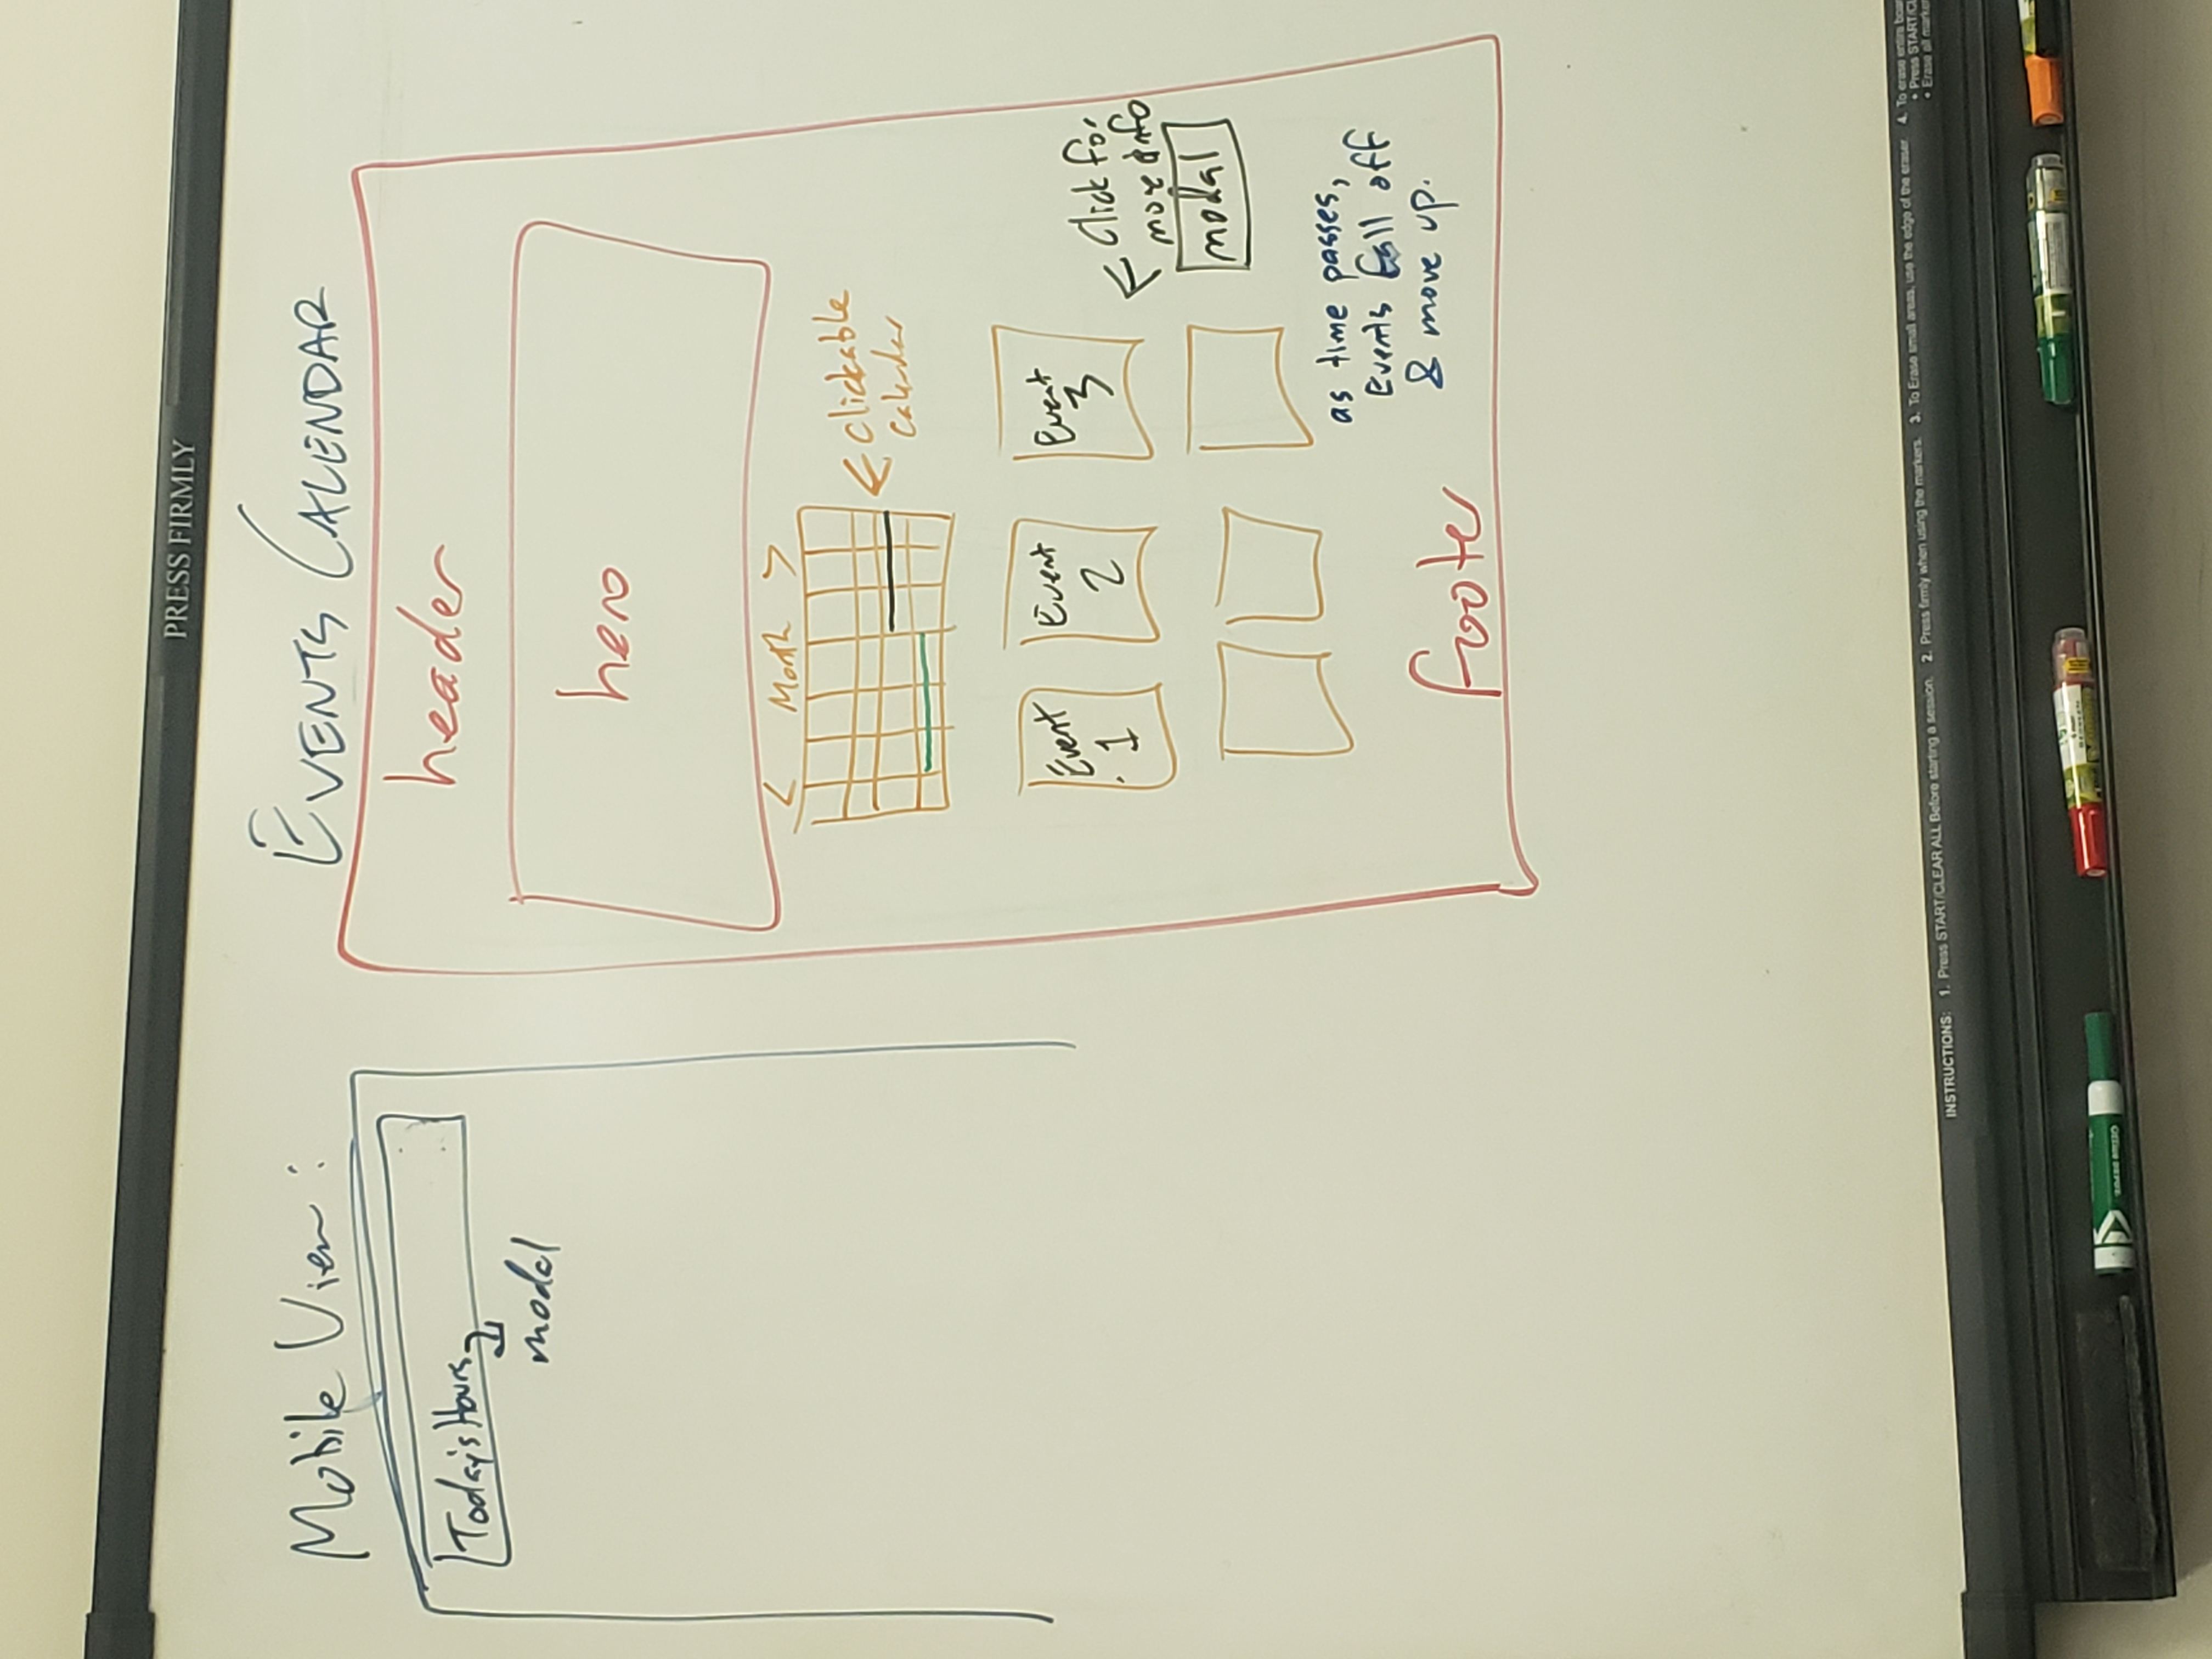 PRESS FIRMLY
Mobile View:
Today's Hours
modal
EVENTS CALENDAR
header
hero
< Month >
← Clickable
Calendar
Event
1
Event
2
Event
3
← Click for
more info
modal
as time passes,
Events Fall off
& move up.
footer
INSTRUCTIONS: 1. Press START/CLEAR ALL Before starting a session. 2. Press firmly when using the markers. 3. To Erase small areas, use the edge of the eraser. 4. To erase entire boar
• Press START/CL
• Erase all marke